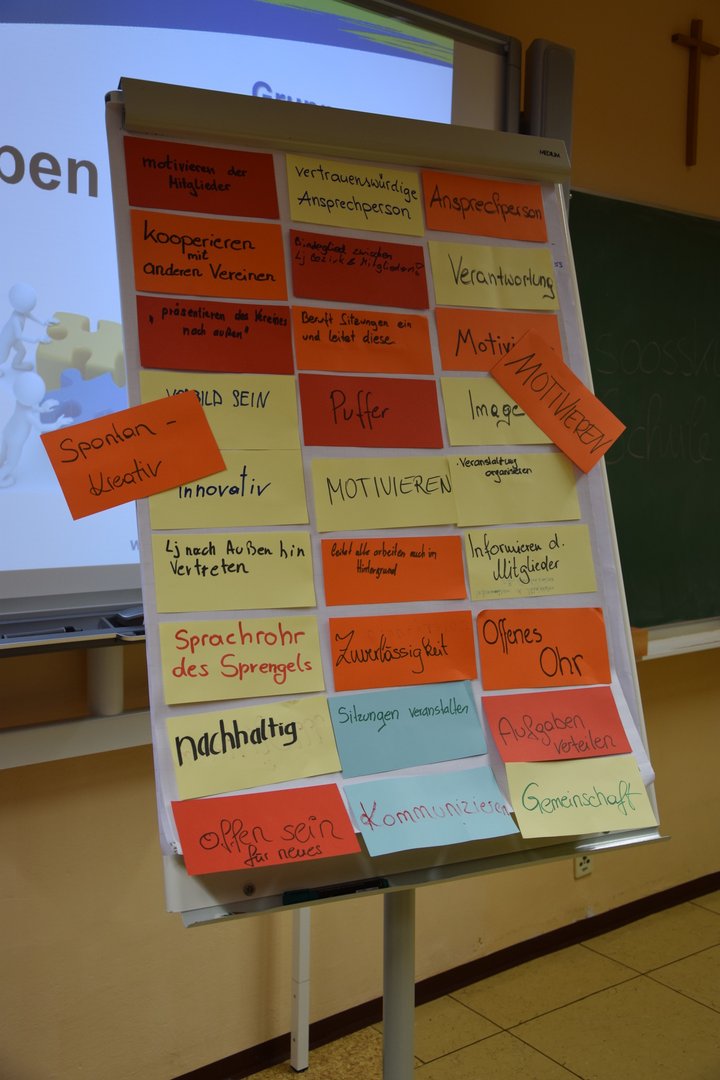 ben
MEDIUM
motivieren der
Mitglieder
vertrauenswürdige
Ansprechperson
Ansprechperson
Kooperieren
mit
anderen Vereinen
Bindeglied zwischen
Lj Bezirk & Mitgliedern?
Verantwortung
"präsentieren des Vereines
nach außen"
Beruft Sitzungen ein
und leitet diese
MOTIVIEREN
Puffer
Image
BILD SEIN
Spontan -
Kreativ
Innovativ
MOTIVIEREN
Veranstaltung
organisieren
Lj nach Außen hin
Vertreten
leitet alle arbeiten auch im
Hintergrund
Informieren d.
Mitglieder
Sprachrohr
des Sprengels
Zuverlässigkeit
Offenes
Ohr
nachhaltig
Sitzungen veranstalten
Aufgaben
verteilen
offen sein
für neues
Kommunizieren
Gemeinschaft